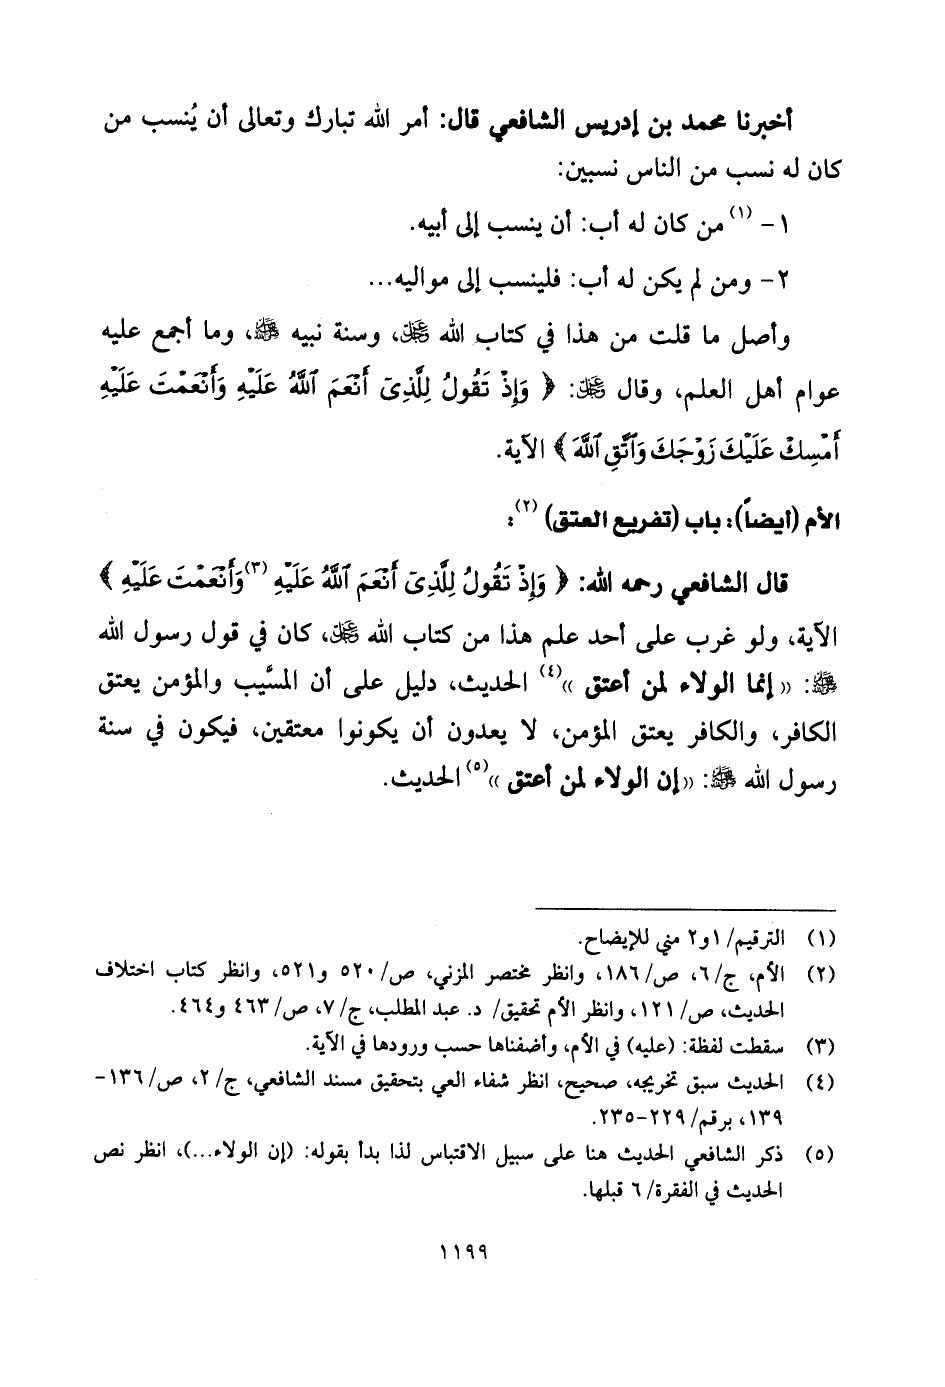 أخبرنا محمد بن إدريس الشافعي قال: أمر الله تبارك وتعالى أن يُنسب من
كان له نسب من الناس نسبين:
١- (١) من كان له أب: أن ينسب إلى أبيه.
٢- ومن لم يكن له أب: فلينسب إلى مواليه...
وأصل ما قلت من هذا في كتاب الله ﷿، وسنة نبيه ﷺ، وما أجمع عليه
عوام أهل العلم، وقال ﷿: ﴿ وَإِذْ تَقُولُ لِلَّذِىٓ أَنْعَمَ ٱللَّهُ عَلَيْهِ وَأَنْعَمْتَ عَلَيْهِ
أَمْسِكْ عَلَيْكَ زَوْجَكَ وَٱتَّقِ ٱللَّهَ ﴾ الآية.
الأم (أيضاً): باب (تفريع العتق) (٢):
قال الشافعي رحمه الله: ﴿ وَإِذْ تَقُولُ لِلَّذِىٓ أَنْعَمَ ٱللَّهُ عَلَيْهِ (٣) وَأَنْعَمْتَ عَلَيْهِ ﴾
الآية، ولو غرب على أحد علم هذا من كتاب الله ﷿، كان في قول رسول الله
ﷺ: «إنما الولاء لمن أعتق »(٤) الحديث، دليل على أن المسَّيب والمؤمن يعتق
الكافر، والكافر يعتق المؤمن، لا يعدون أن يكونوا معتقين، فيكون في سنة
رسول الله ﷺ: «إن الولاء لمن أعتق »(٥) الحديث.
(١) الترقيم/ ١و٢ مني للإيضاح.
(٢) الأم، ج/ ٦، ص/ ١٨٦، وانظر مختصر المزني، ص/ ٥٢٠ و٥٢١، وانظر كتاب اختلاف
الحديث، ص/ ١٢١، وانظر الأم تحقيق/ د. عبد المطلب، ج/ ٧، ص/ ٤٦٣ و٤٦٤.
(٣) سقطت لفظة: (عليه) في الأم، وأضفناها حسب ورودها في الآية.
(٤) الحديث سبق تخريجه، صحيح، انظر شفاء العي بتحقيق مسند الشافعي، ج/ ٢، ص/ ١٣٦-
١٣٩، برقم/ ٢٢٩-٢٣٥.
(٥) ذكر الشافعي الحديث هنا على سبيل الاقتباس لذا بدأ بقوله: (إن الولاء...)، انظر نص
الحديث في الفقرة/ ٦ قبلها.
١١٩٩